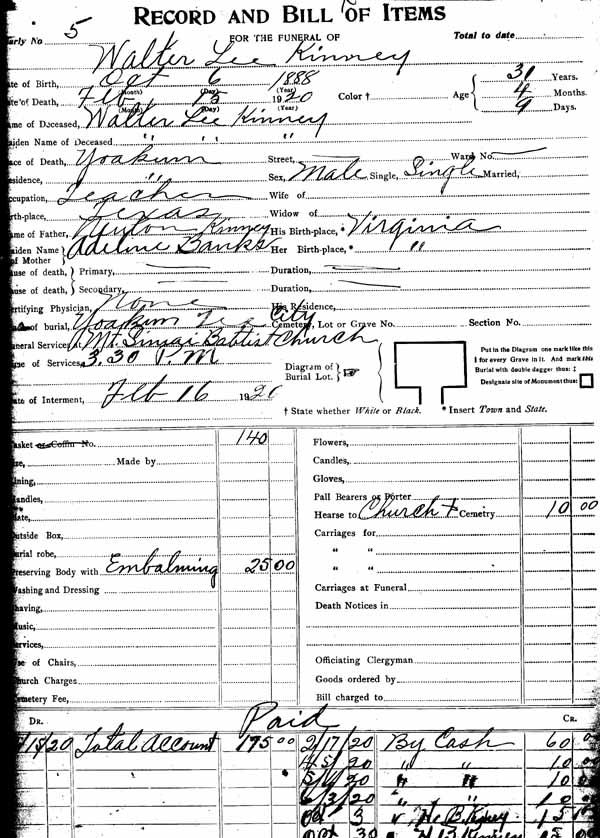 RECORD AND BILL OF ITEMS
arly No 5 FOR THE FUNERAL OF Total to date
Walter Lee Kinney
te of Birth, Oct 6 1888 31 Years.
(Month) (Day) (Year)
te of Death, Feb 15 1920 Color † Age 4 Months.
(Month) (Day) (Year) 9 Days.
ame of Deceased, Walter Lee Kinney
aiden Name of Deceased " " "
ace of Death, Yoakum Street, Ward No.
sidence, " Sex, Male Single, Single Married,
ccupation, Teacher Wife of
rth-place, Texas Widow of
ame of Father, Kinney His Birth-place, * Virginia
aiden Name of Mother Adeline Banks Her Birth-place, * "
use of death, Primary, Duration,
use of death, Secondary, Duration,
rtifying Physician, None His Residence,
of burial, Yoakum City Cemetery, Lot or Grave No. Section No.
neral Services at Mt. Baptist Church
me of Services, 3.30 P.M
Diagram of Burial Lot.
Put in the Diagram one mark like this
‡ for every Grave in it. And mark this
Burial with double dagger thus: ‡
Designate site of Monument thus:
ate of Interment, Feb 16 1920
† State whether White or Black. * Insert Town and State.
asket or Coffin No. 140
Made by
ning,
andles,
late,
utside Box,
urial robe,
reserving Body with Embalming 25 00
ashing and Dressing
having,
usic,
rvices,
se of Chairs,
hurch Charges
metery Fee,
Flowers,
Candles,
Gloves,
Pall Bearers or Porter
Hearse to Church + Cemetry 10 00
Carriages for
" "
" "
Carriages at Funeral
Death Notices in
Officiating Clergyman
Goods ordered by
Bill charged to
DR. Paid CR.
20 Total Account 175 00 2/17/20 By Cash 60 0
4/5/20 " " 10 0
20 " " 10 0
6/3/20 " " 10 0
Oct 3 " H. B. 15
Oct 30